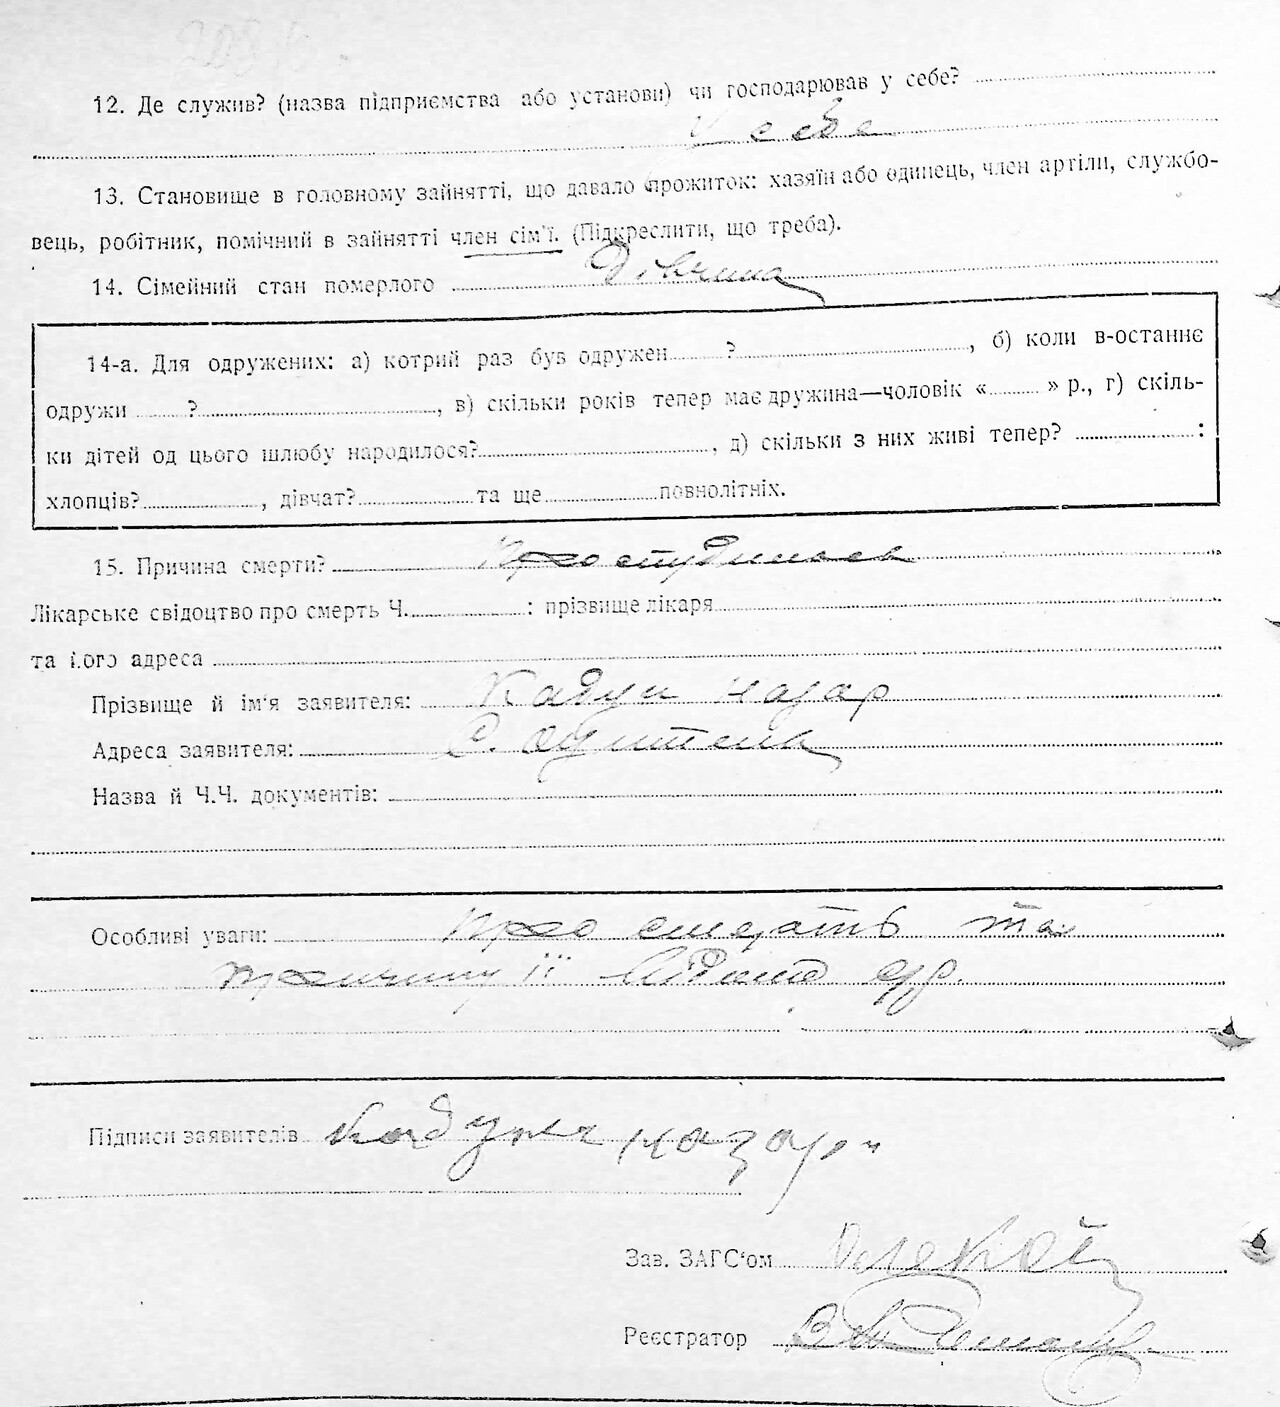 12. Де служив? (назва підприємства або установи) чи господарював у себе?
У себе
13. Становище в головному зайнятті, що давало прожиток: хазяїн або одинець, член артіли, службо-
вець, робітник, помічний в зайнятті член сім'ї. (Підкреслити, що треба).
14. Сімейний стан померлого Дівчина
14-а. Для одружених: а) котрий раз був одружен ? , б) коли в-останнє
одружи ? , в) скільки років тепер має дружина—чоловік « » р., г) скіль-
ки дітей од цього шлюбу народилося? , д) скільки з них живі тепер? :
хлопців? , дівчат? та ще повнолітніх.
15. Причина смерти? Простудилась
Лікарське свідоцтво про смерть Ч. : прізвище лікаря
та його адреса
Прізвище й ім'я заявителя: Кадун Назар
Адреса заявителя: С.
Назва й Ч.Ч. документів:
Особливі уваги: про смерть та
причину її
Підписи заявителів Кадун Назар
Зав. ЗАГС'ом
Реєстратор